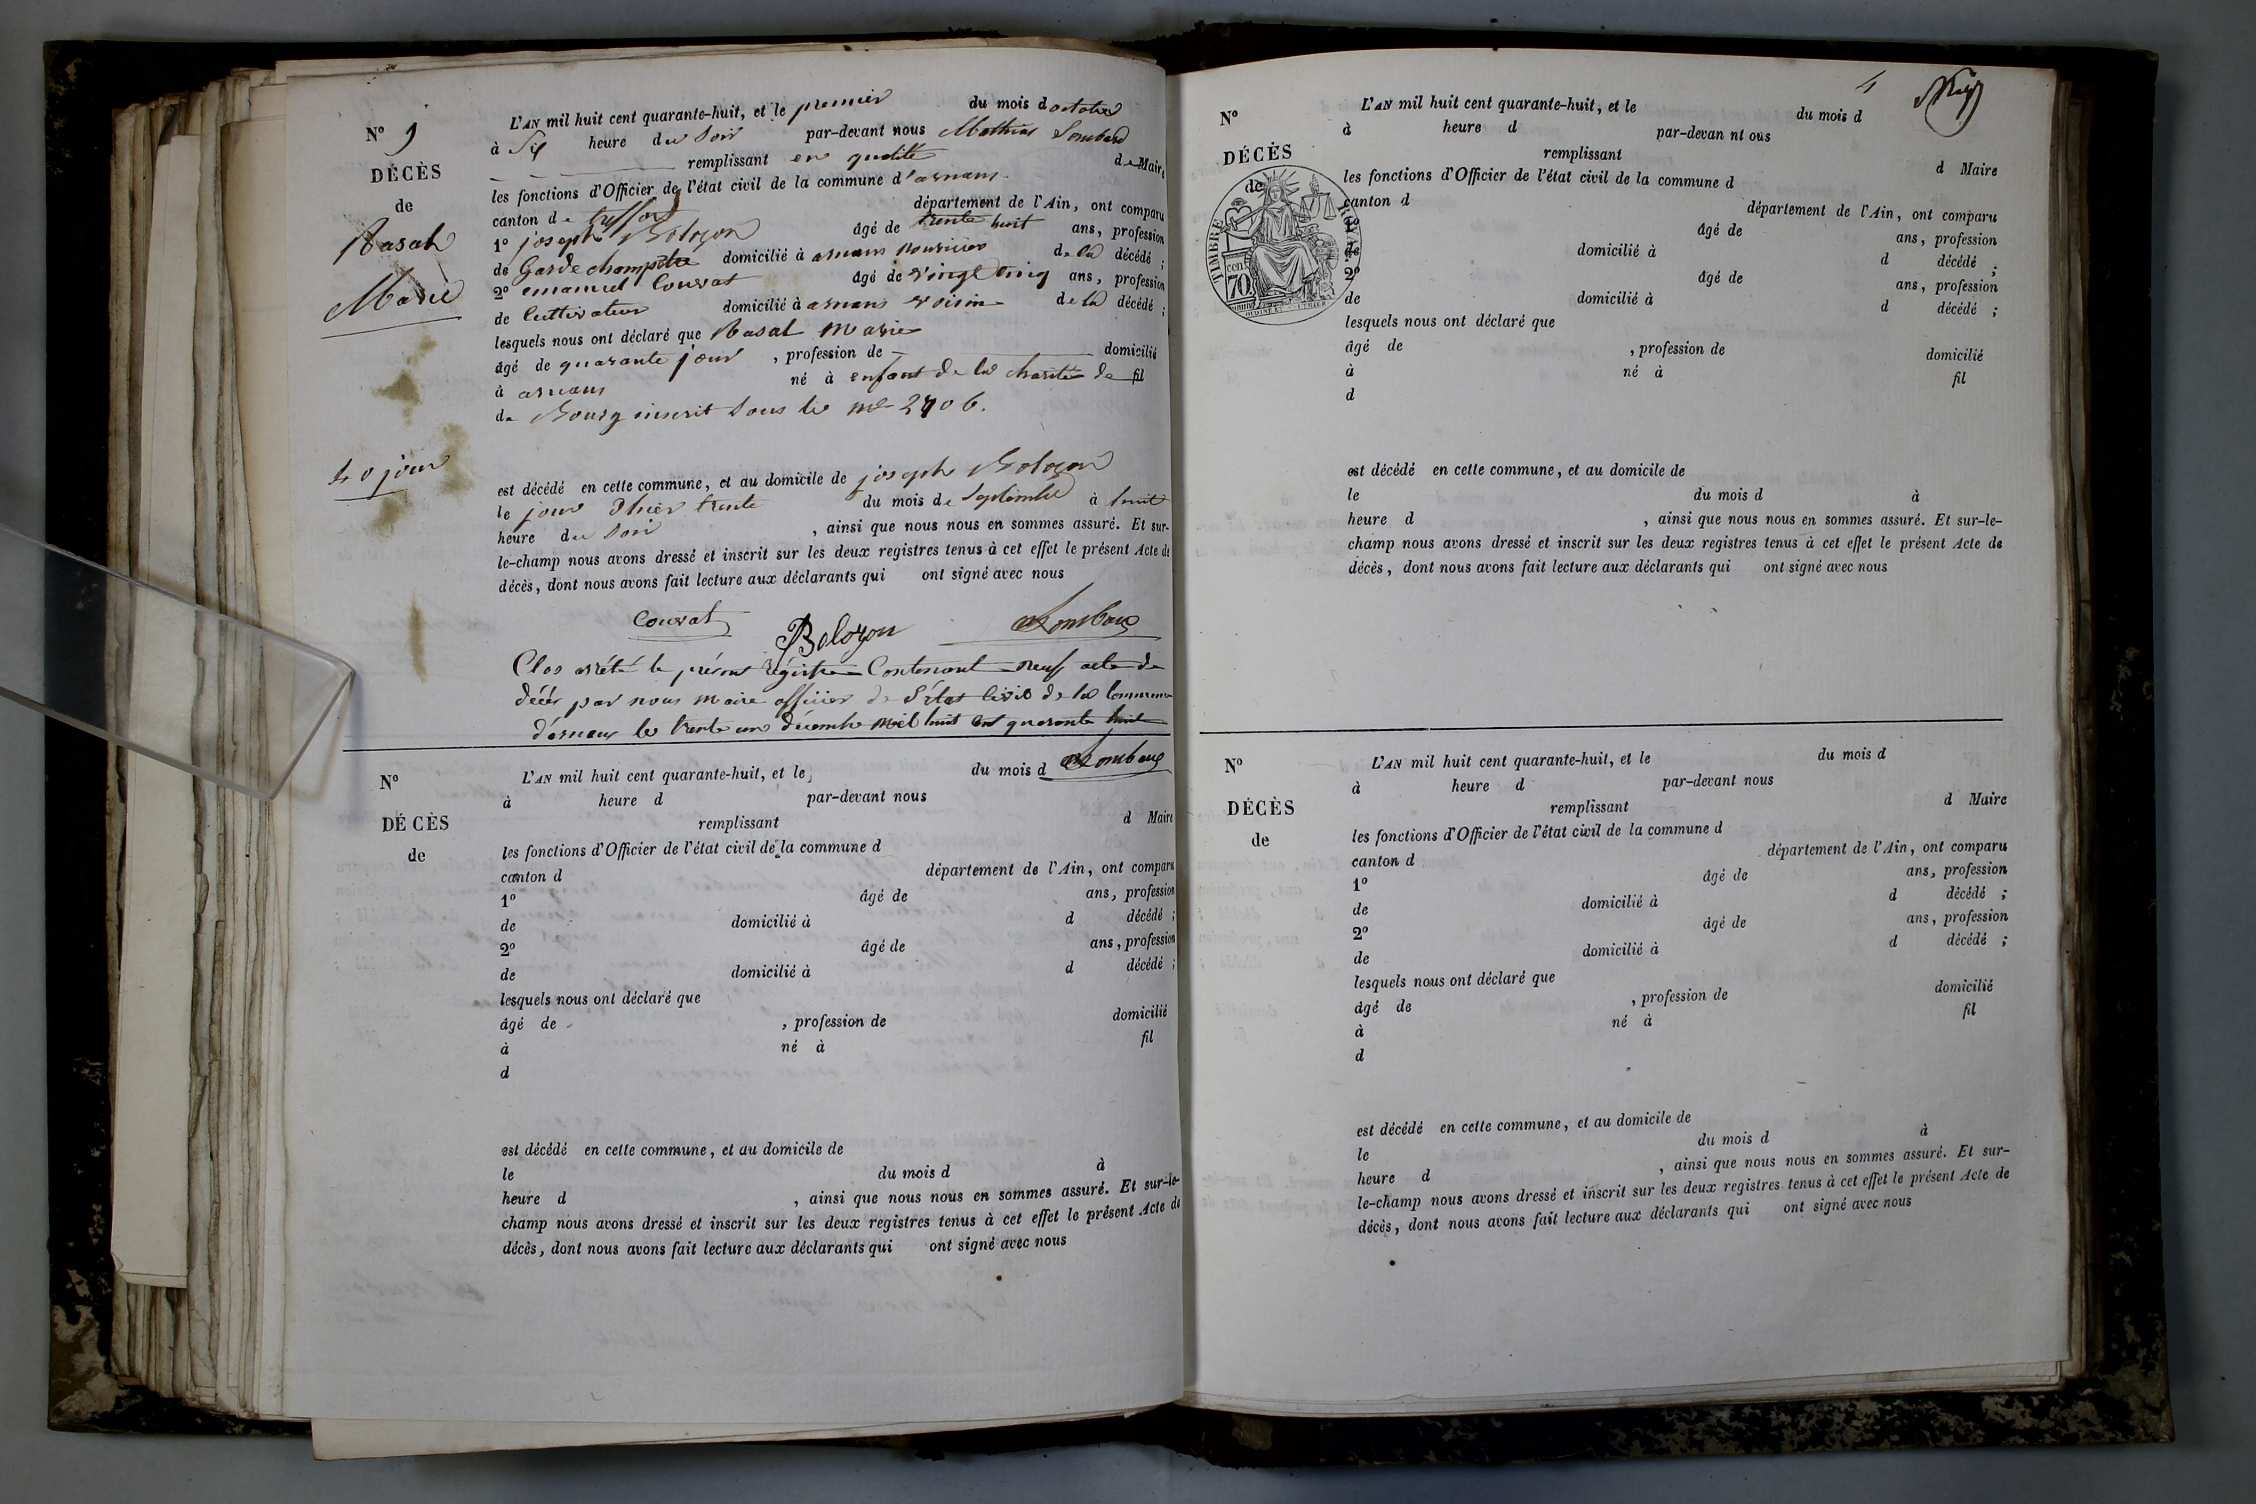 N° 9
DÉCÈS
de
Rasah
Marie
40 jour
L'AN mil huit cent quarante-huit, et le premier du mois d octobre
à Six heure du Soir par-devant nous Mathias Lombard
remplissant en qualité de Maire
les fonctions d'Officier de l'état civil de la commune d'arnans
canton de treffort département de l'Ain, ont comparu
1° joseph Bologon âgé de trente huit ans, profession
de Garde champêtre domicilié à arnans nourricier de la décédé ;
2° emanuel Couvat âgé de vingt cinq ans, profession
de Cultivateur domicilié à arnans voisin de la décédé ;
lesquels nous ont déclaré que Rasat Marie
âgé de quarante jour , profession de domicilié
à arnans né à enfant de la charité de fil
de Bourg inscrit Sous le n° 2706.
est décédé en cette commune, et au domicile de joseph Bologon
le jour d'hier trente du mois de Septembre à huit
heure du Soir , ainsi que nous nous en sommes assuré. Et sur-
le-champ nous avons dressé et inscrit sur les deux registres tenus à cet effet le présent Acte de
décès, dont nous avons fait lecture aux déclarants qui ont signé avec nous
Couvat Bolozon Lombard
Clos arrêté le présent régistre Contenant neuf acte de
décés par nous maire officier de l'état Civil de la Commune
d'arnans le trente un décembre mil huit cent quarante huit
Lombard
N°
DÉCÈS
de
L'AN mil huit cent quarante-huit, et le du mois d
à heure d par-devant nous
remplissant d Maire
les fonctions d'Officier de l'état civil de la commune d
canton d département de l'Ain, ont comparu
1° âgé de ans, profession
de domicilié à d décédé ;
2° âgé de ans, profession
de domicilié à d décédé ;
lesquels nous ont déclaré que
âgé de , profession de domicilié
à né à fil
d
est décédé en cette commune, et au domicile de
le du mois d à
heure d , ainsi que nous nous en sommes assuré. Et sur-le-
champ nous avons dressé et inscrit sur les deux registres tenus à cet effet le présent Acte de
décès, dont nous avons fait lecture aux déclarants qui ont signé avec nous
4
N°
DÉCÈS
de
TIMBRE ROYAL
cen. 70
L'AN mil huit cent quarante-huit, et le du mois d
à heure d par-devan nt ous
remplissant d Maire
les fonctions d'Officier de l'état civil de la commune d
canton d département de l'Ain, ont comparu
1° âgé de ans, profession
de domicilié à d décédé ;
2° âgé de ans, profession
de domicilié à d décédé ;
lesquels nous ont déclaré que
âgé de , profession de domicilié
à né à fil
d
est décédé en cette commune, et au domicile de
le du mois d à
heure d , ainsi que nous nous en sommes assuré. Et sur-le-
champ nous avons dressé et inscrit sur les deux registres tenus à cet effet le présent Acte de
décès, dont nous avons fait lecture aux déclarants qui ont signé avec nous
N°
DÉCÈS
de
L'AN mil huit cent quarante-huit, et le du mois d
à heure d par-devant nous
remplissant d Maire
les fonctions d'Officier de l'état civil de la commune d
canton d département de l'Ain, ont comparu
1° âgé de ans, profession
de domicilié à d décédé ;
2° âgé de ans, profession
de domicilié à d décédé ;
lesquels nous ont déclaré que
âgé de , profession de domicilié
à né à fil
d
est décédé en cette commune, et au domicile de
le du mois d à
heure d , ainsi que nous nous en sommes assuré. Et sur-
le-champ nous avons dressé et inscrit sur les deux registres tenus à cet effet le présent Acte de
décès, dont nous avons fait lecture aux déclarants qui ont signé avec nous